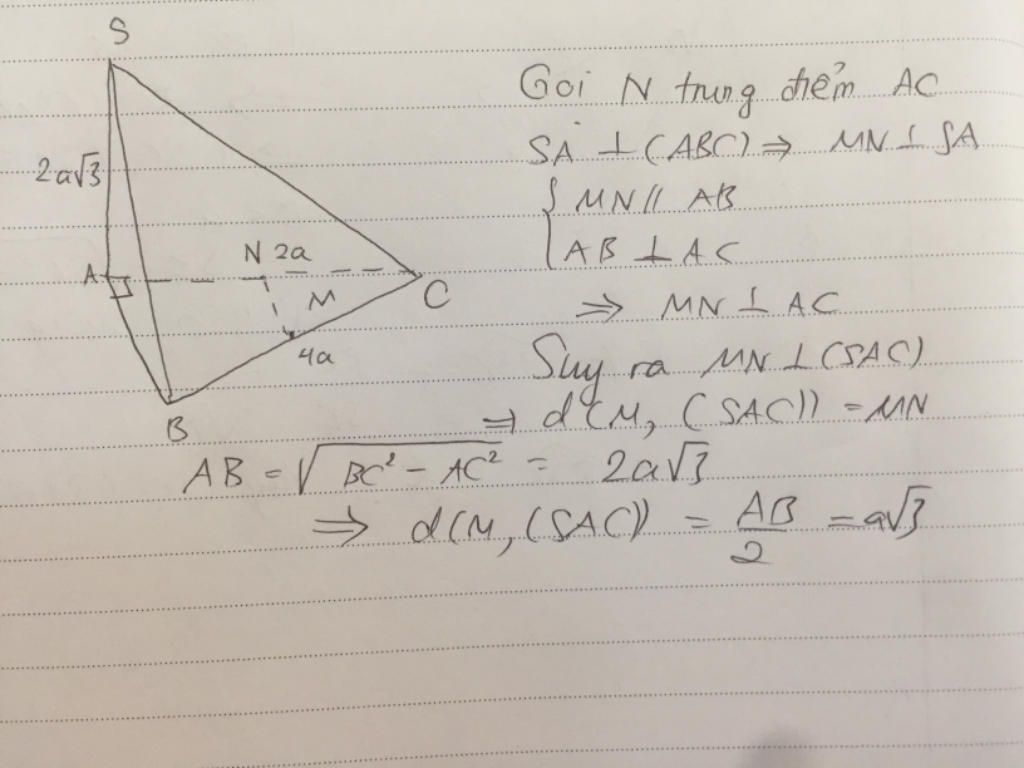 S
2a√3
A
N 2a
M
C
4a
B
Gọi N trung điểm AC
SA ⊥ (ABC) ⇒ MN ⊥ SA
{ MN // AB
AB ⊥ AC
⇒ MN ⊥ AC
Suy ra MN ⊥ (SAC)
⇒ d(M, (SAC)) = MN
AB = √(BC² - AC²) = 2a√3
⇒ d(M, (SAC)) = AB/2 = a√3